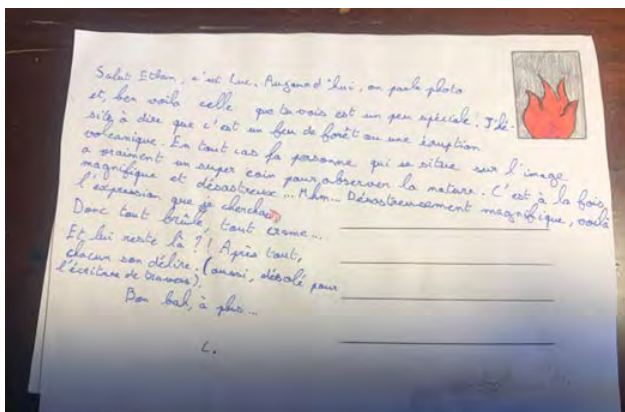 Salut Ethan, c'est Luc. Aujourd'hui, on parle photo
et, ben voilà celle que tu vois est un peu spéciale. J'hé-
site à dire que c'est un feu de forêt ou une éruption
volcanique. En tout cas la personne qui se situe sur l'image
a vraiment un super coin pour observer la nature. C'est à la fois
magnifique et désastreux... Mhm... Désastreusement magnifique, voilà
l'expression que je cherchais.
Donc tout brûle, tout crame...
Et lui reste là ?! Après tout,
chacun son délire. (aussi, désolé pour
l'écriture de travers).
Bon bah, à plus...
L.